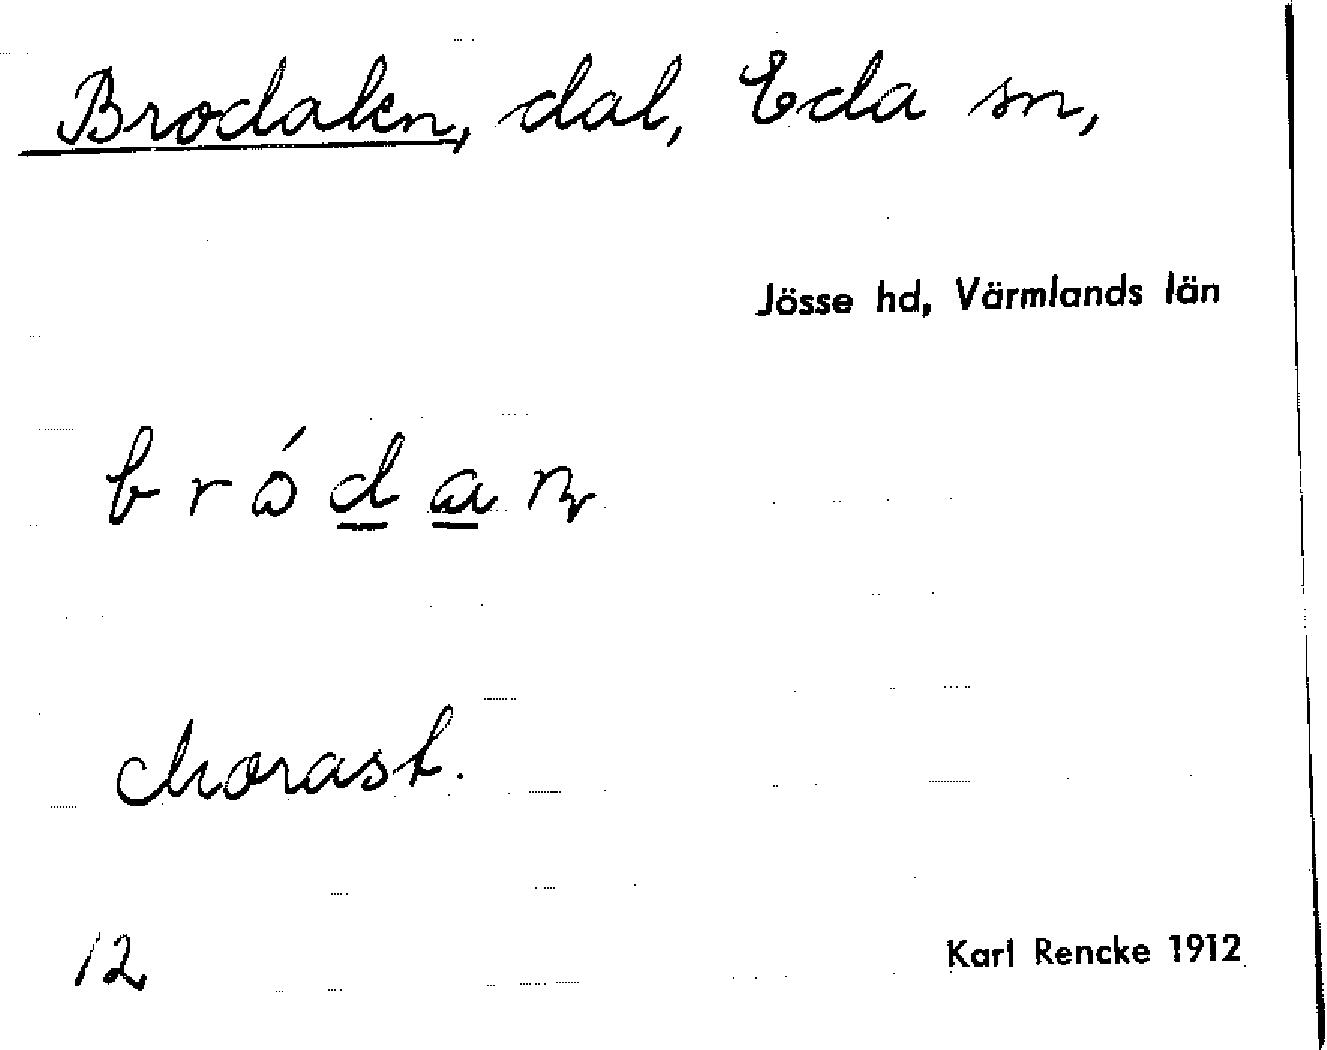 Brodalen, dal, Eda sn,
Jösse hd, Värmlands län
b r ó d a n
Morast.
12
Karl Rencke 1912